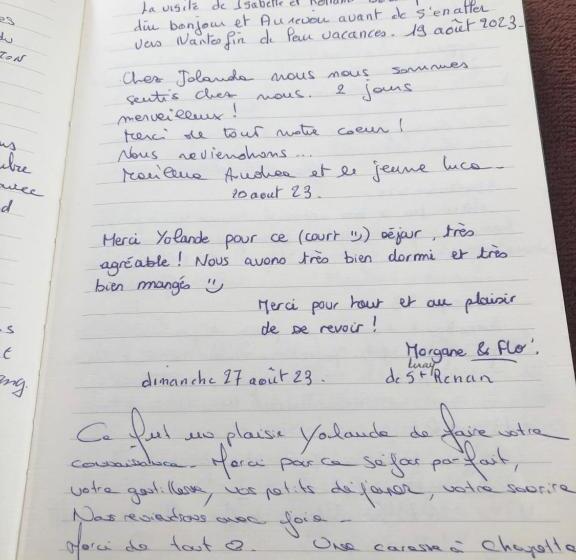 La visite de Isabelle et
dire bonjour et Au revoir avant de s'en aller
vers Nantes fin de leur vacances. 19 août 2023-
Chez Jolanda nous nous sommes
sentis chez nous. 2 jours
merveilleux !
Merci de tout notre coeur !
Nous reviendrons ...
Marilena Andrea et le jeune Luca -
20 aout 23.
Merci Yolande pour ce (court :)) séjour, très
agréable ! Nous avons très bien dormi et très
bien mangés :)
Merci pour tout et au plaisir
de se revoir !
Morgane & Flo'.
dimanche 27 août 23. de St Renan
Ce fut un plaisir Yolande de faire votre
connaissance. Merci pour ce séjour parfait,
votre gentillesse, vos petits déjeuner, votre sourire
Nous reviendrons avec joie -
Merci de tout ♡. Une caresse à